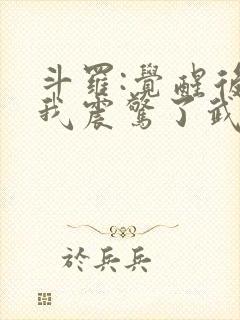 斗羅:覺醒後
我震驚了武
於兵兵